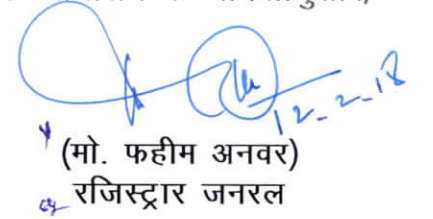 12-2-18
(मो. फहीम अनवर)
रजिस्ट्रार जनरल